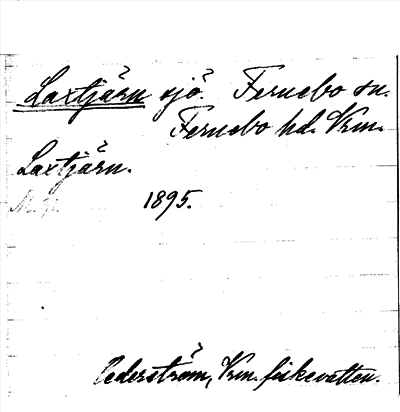 Laxtjärn sjö. Fernebo sn.
Fernebo hd. Vrm.
Laxtjärn.
1895.
Cederström, Vrm. fiskevatten.